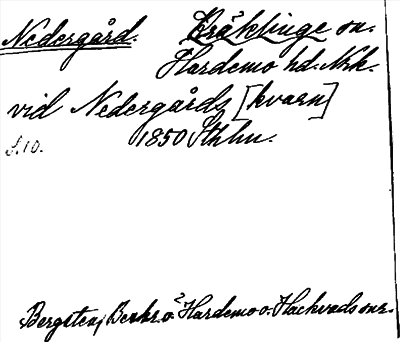 Nedergård. Kräklinge sn.
Hardemo hd. Nkk.
vid Nedergårds [kvarn]
S.10. 1850 Sthlm.
Bergsten, Beskr. o. Hardemo o. Hackvads snr.